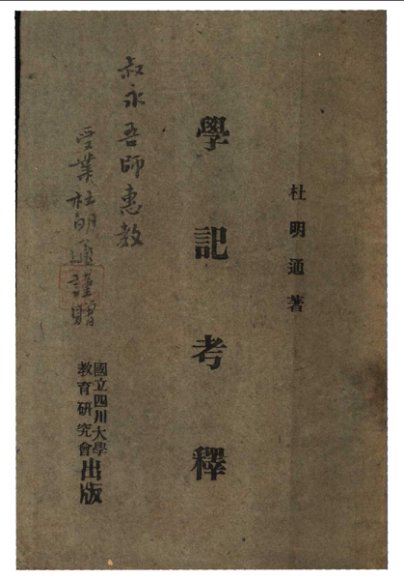 杜明通著
學記考釋
叔永吾師惠教
受業杜明通謹贈
國立四川大學
教育研究會
出版